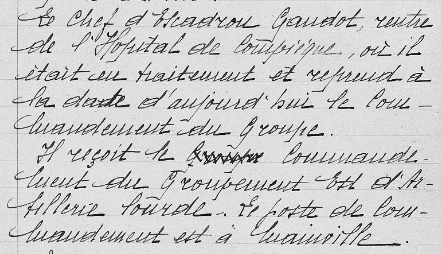 Le Chef d'Escadron Gaudot, rentre
de l'Hôpital de Compiègne, où il
était en traitement et reprend à
la date d'aujourd'hui le Com-
mandement du Groupe.
Il reçoit le Commande-
ment du Groupement Est d'Ar-
tillerie lourde. Le poste de Com-
mandement est à Mainville.